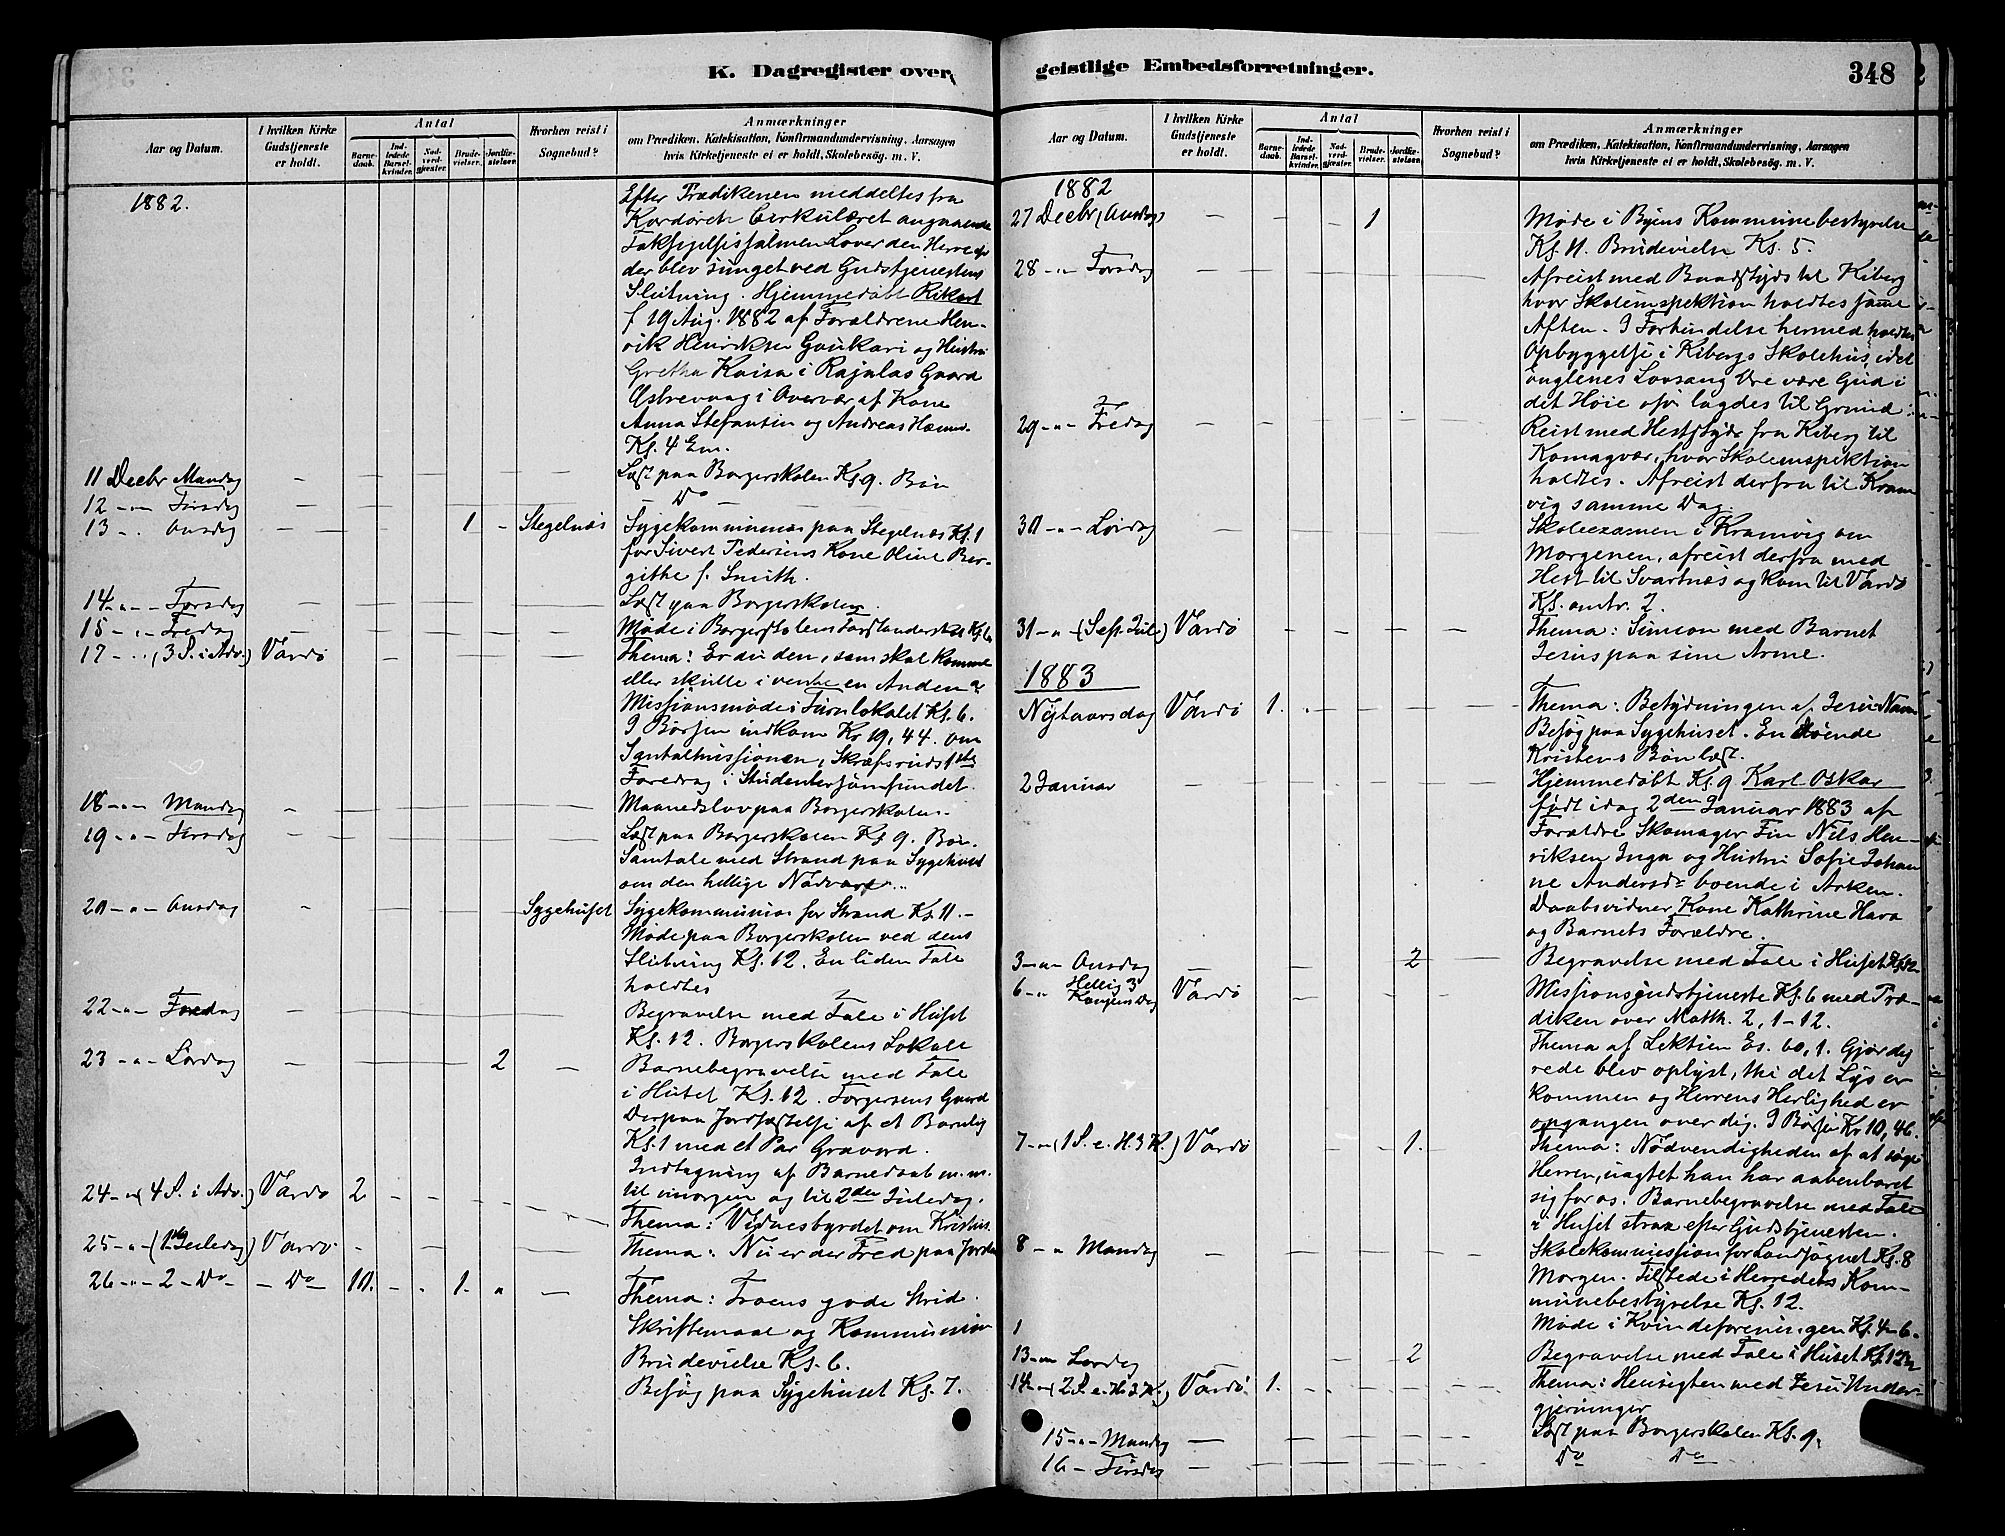 K. Dagregister over geistlige Embedsforretninger.
348
Aar og Datum.
I hvilken Kirke Gudstjeneste er holdt.
Antal
Barnedaab.
Indledede Barselkvinder.
Nadverdgjester.
Brudevielser.
Jordfæstelser.
Hvorhen reist i Sognebud?
Anmærkninger
om Prædiken, Katekisation, Konfirmandundervisning, Aarsagen
hvis Kirketjeneste ei er holdt, Skolebesøg. m. V.
1882.
Efter Prædikenen meddeltes fra
Kordören Cirkulæret angaaende
Taksigelsessalmen Lover den Herre &
der blev sunget ved Gudstjenestens
Slutning. Hjemmedöbt Rikart
f 19 Aug. 1882 af Forældrene Hen-
rik Henriksen Gaukari og Hustru
Gretha Kaisa i Rajalas Gaard
Östrevaag i Overvær af Kone
Anna Stefantin og Andreas
Kl. 4 Em.
11 Decbr Mandag
Læst paa Borgerskolen Kl 9. Bön
12 - - Tirsdag
Do
13 - . Onsdag 1 - Stegelnæs
Sygekommunion paa Stegelnæs Kl. 1
for Sivert Pedersens Kone Oline Ber-
githe f. Smith.
14 - - Torsdag
Læst paa Borgerskolen.
15 - - Fredag
Möde i Borgerskolens Forstanderskab Kl 6
17 - . (3 S. i Adv.) Vardö
Thema: Er du den, som skal komme
eller skulle i vente en Anden &
Missionsmöde i Turnlokalet Kl. 6.
I Börsen indkom Kr 19,44. om
Santalmissionen, Skrefsruds 1ste
Foredrag i Studentersamfundet.
18 - - Mandag
Maanedslov paa Borgerskolen.
19 - - Tirsdag
Læst paa Borgerskolen Kl 9. Bön.
Samtale med Strand paa Sygehuset
om den hellige Nadvere...
20 - - Onsdag Sygehuset
Sygekommunion for Strand Kl. 11. -
Möde paa Borgerskolen ved dens
Slutning Kl. 12. En liden Tale
holdtes
22 - - Fredag
Begravelse med Tale i Huset
Kl. 12. Borgerskolens Lokale
23 - - Lördag 2
Barnebegravelse med Tale
i Huset Kl. 12. Torgersens Gaard
Derpaa Jordfæstelse af et Barnelig
Kl. 1 med et Par Gravord.
Indtagning af Barnedaab m. m.
til imorgen og til 2den Juledag.
24 - (4 S. i Adv.) Vardö 2
Thema: Vidnesbyrdet om Kristus.
25 - (1ste Juledag) Vardö
Thema: Nu er der Fred paa Jorden
26 - - 2 - Do - Do 10. 1.
Thema: Troens gode Strid.
Skriftemaal og Kommunion
Brudevielse Kl. 6.
Besög paa Sygehuset Kl. 7.
Aar og Datum.
I hvilken Kirke Gudstjeneste er holdt.
Antal
Barnedaab.
Indledede Barselkvinder.
Nadverdgjester.
Brudevielser.
Jordfæstelser.
Hvorhen reist i Sognebud?
Anmærkninger
om Prædiken, Katekisation, Konfirmandundervisning, Aarsagen
hvis Kirketjeneste ei er holdt, Skolebesøg. m. V.
1882
27 Decbr (Onsdag) 1
Möde i Byens Kommunebestyrelse
Kl. 11. Brudevielse Kl. 5.
28 - - Torsdag
Afreist med Baadskyds til Kiberg
hvor Skoleinspektion holdtes samme
Aften. I Forbindelse hermed holdtes
Opbyggelse i Kibergs Skolehus, idet
Englenes Lovsang Ære være Gud i
det Höie osv. lagdes til Grund.
29 - - Fredag
Reist med Hestskyds fra Kiberg til
Komagvær, hvor Skoleinspektion
holdtes. Afreist derfra til Kram-
vig samme Dag.
30 - - Lördag
Skoleexamen i Kramvig om
Morgenen, afreist derfra med
Hest til Svartnæs og kom til Vardö
Kl. omtr. 2.
31 - - (Söst. Jule) Vardö
Thema: Simeon med Barnet
Jesus paa sine Arme.
1883
Nytaarsdag Vardö 1.
Thema: Betydningen af Jesu Navn
Besög paa Sygehuset. En döende
Kristens Bön læst.
2 Januar
Hjemmedöbt Kl. 9 Karl Oskar
födt idag 2den Januar 1883 af
Forældre Skomager Fin Nils Hen-
riksen Inga og Hustru Sofie Johan-
ne Andersdr boende i Arken.
Daabsvidner Kone Kathrine Hara
og Barnets Forældre.
3 - - Onsdag 2
Begravelse med Tale i Huset Kl 12
6 - - Hellig 3 Kongers Dag Vardö
Missionsgudstjeneste Kl. 6 med Præ-
diken over Matth. 2, 1-12.
Thema af Lektien Es. 60, 1. Gjör dig
rede blev oplyst, thi det Lys er
kommen og Herrens Herlighed er
opgangen over dig. I Börsen Kr 10,46.
7 - (1 S. e. H. 3 K.) Vardö 1.
Thema: Nödvendigheden af at söge
Herren, uagtet han har aabenbaret
sig for os. Barnebegravelse med Tale
i Huset strax efter Gudstjenesten.
8 - - Mandag
Skolekommission for Landsognet Kl. 8
Morgen. Tilstede i Herredets Kom-
munebestyrelse Kl. 12.
Möde i Kvindeforeningen Kl. 4-6.
13 - Lördag 2
Begravelse med Tale i Huset Kl. 12½
14 - (2 S. e. H. 3 K.) Vardö 1.
Thema: Hensigten med Jesu Under-
gjerninger
15 - - Mandag
Læst paa Borgerskolen Kl. 9.
16 - Tirsdag
Do Do